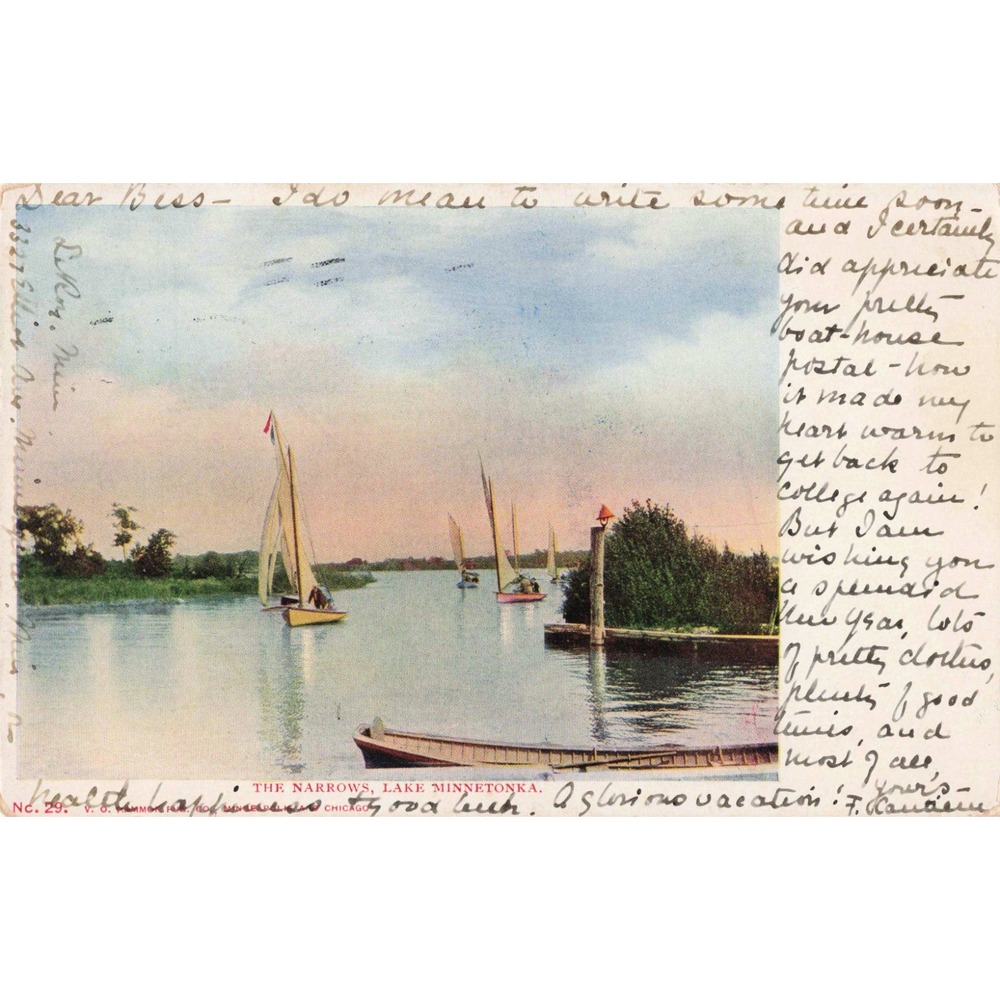 Dear Bess- I do mean to write some time soon-
and I certainly
did appreciate
your pretty
boat-house
postal - how
it made my
heart warm to
get back to
college again!
But I am
wishing you
a splendid
New Year, lots
of pretty clothes,
plenty of good
times, and
most of all,
health, happiness & good luck. A glorious vacation! Yours-
F.
LeRoy, Minn
3327 Ave. Minneapolis, Minn
THE NARROWS, LAKE MINNETONKA.
No. 29. V. O. HAMMON PUB. CO., MINNEAPOLIS AND CHICAGO